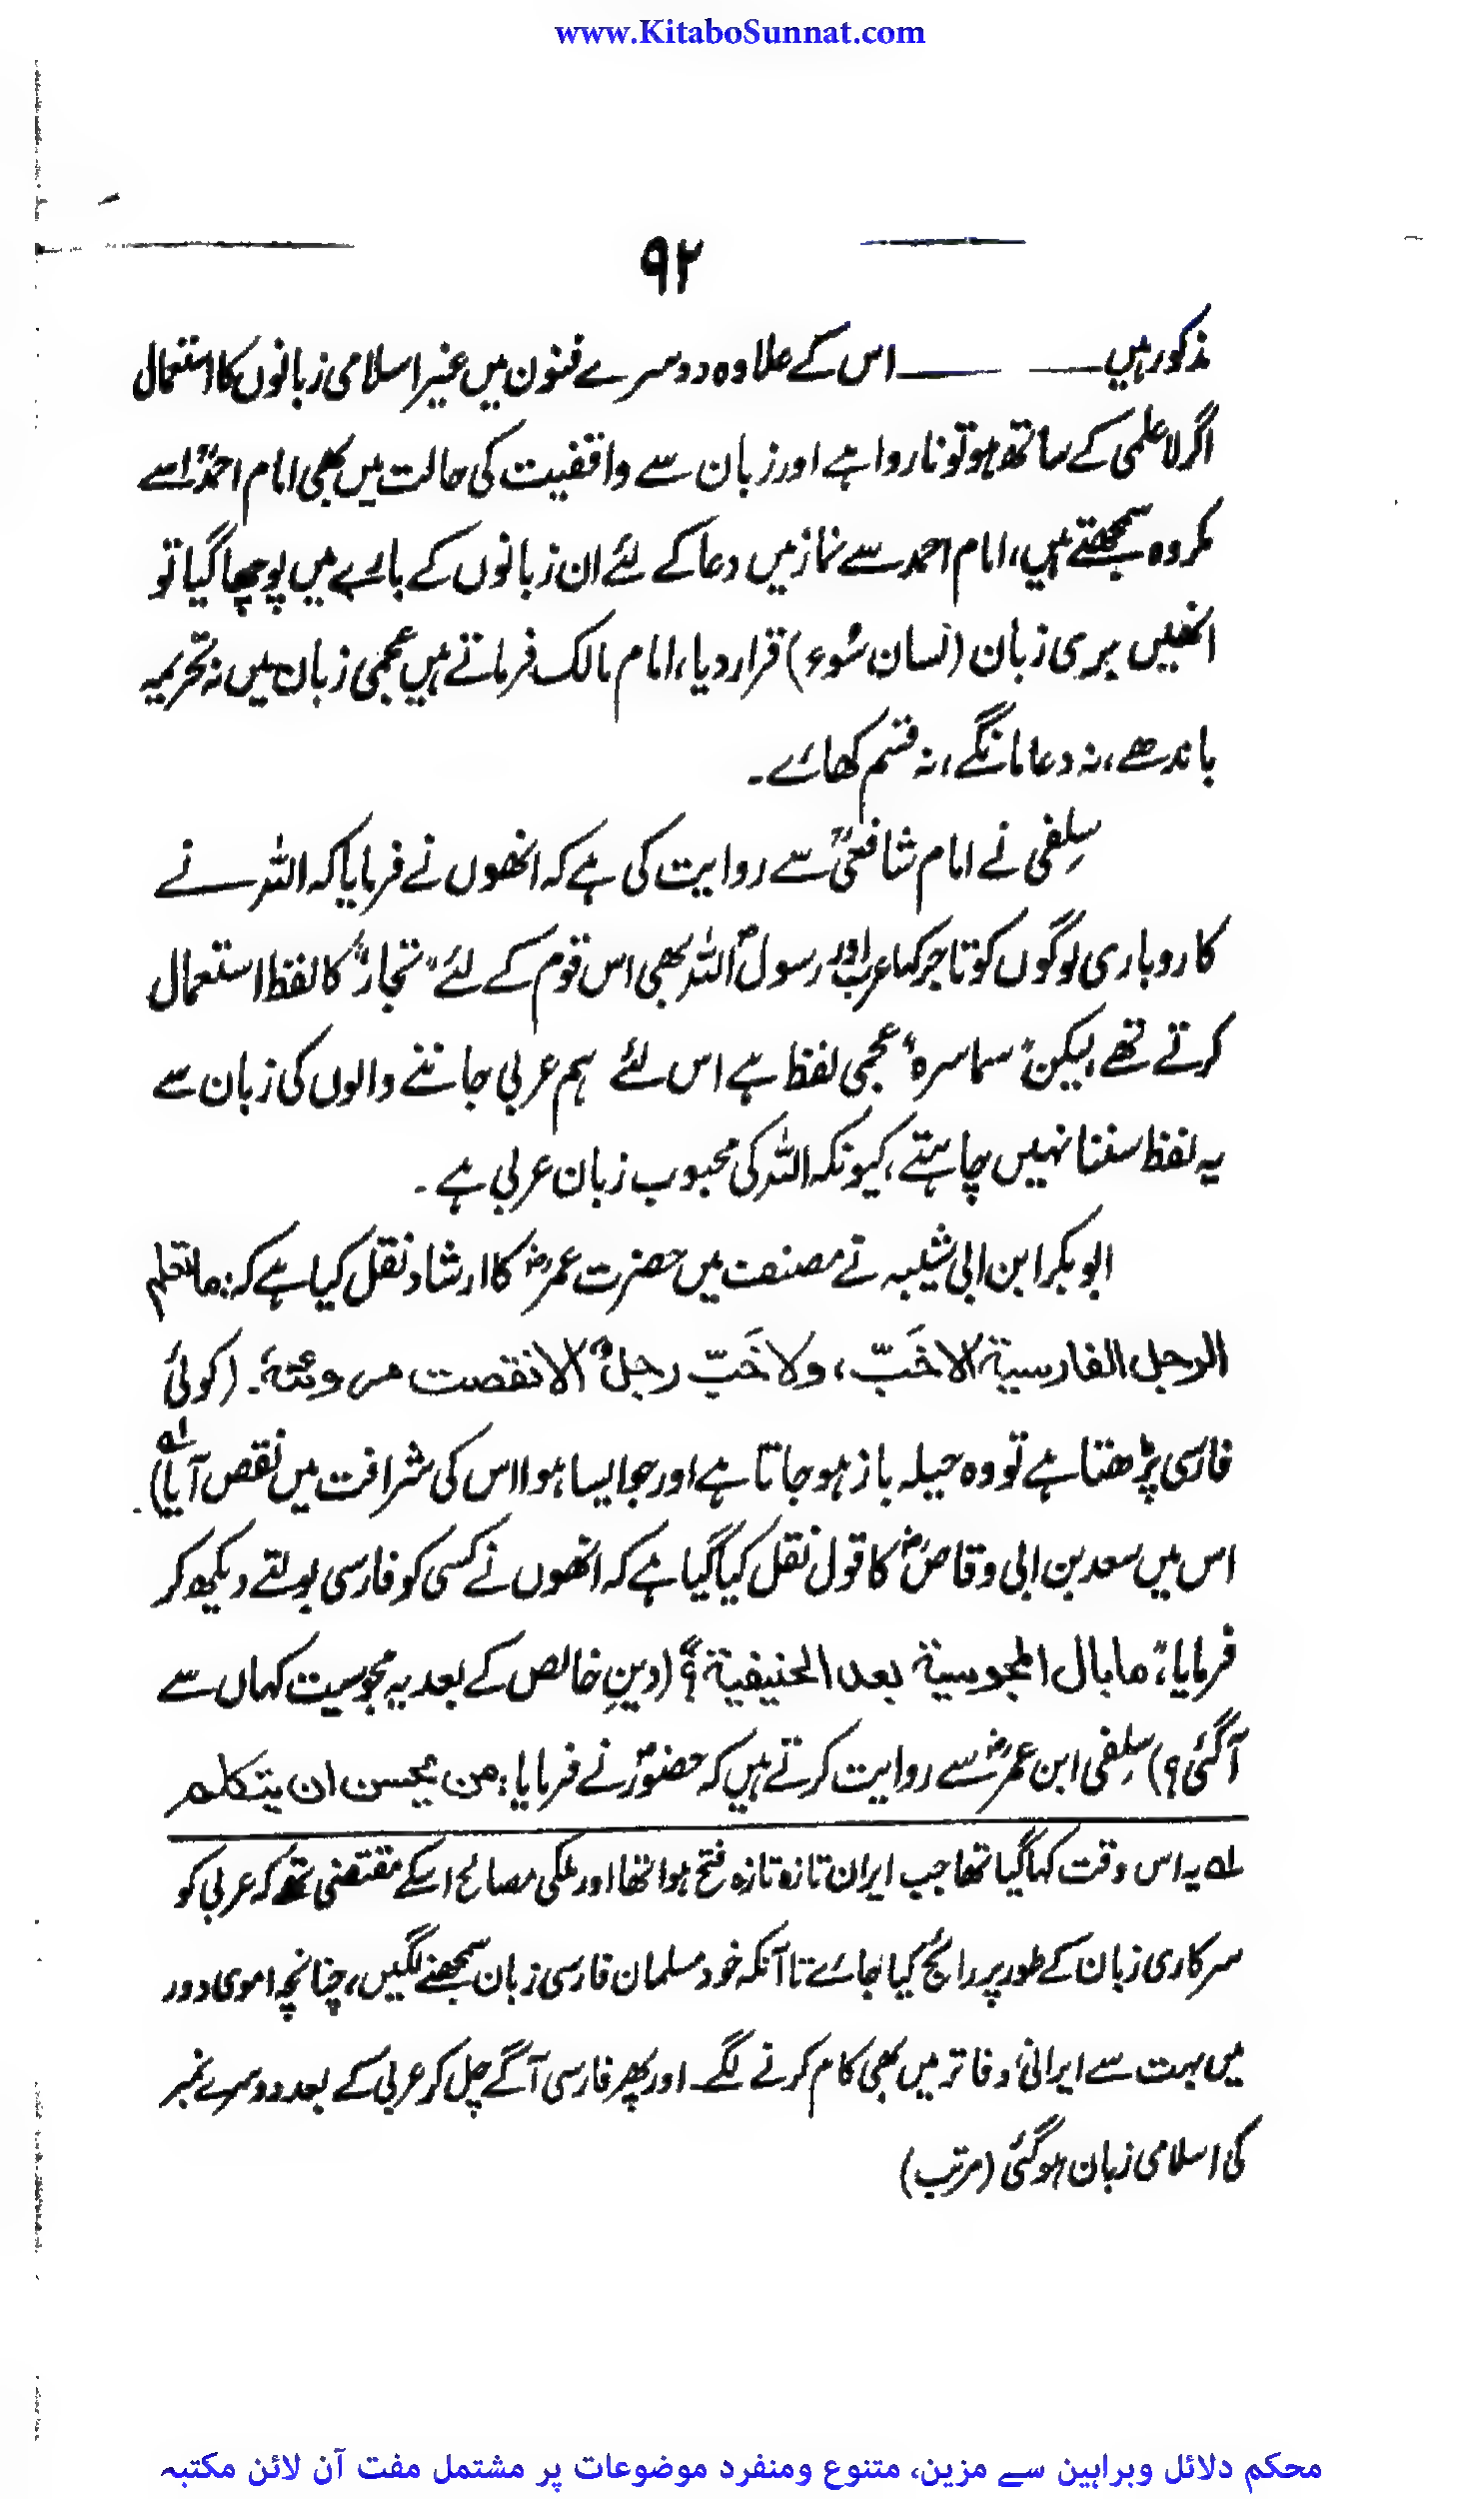 www.KitaboSunnat.com
۹۲
مذکور ہیں ـــــــ ـــــــ اس کے علاوہ دوسرے فنون میں غیر اسلامی زبانوں کا استعمال
اگر لاعلمی کے ساتھ ہو تو ناروا ہے اور زبان سے واقفیت کی حالت میں بھی امام احمدؒ اسے
مکروہ سمجھتے ہیں، امام احمد سے نماز میں دعا کے لئے ان زبانوں کے بارے میں پوچھا گیا تو
انھیں بری زبان (لسان سُوء) قرار دیا، امام مالک فرماتے ہیں عجمی زبان میں نہ تحریمہ
باندھے، نہ دعا مانگے، نہ قسم کھائے۔
سِلفی نے امام شافعیؒ سے روایت کی ہے کہ انھوں نے فرمایا کہ اللہ نے
کاروباری لوگوں کو تاجر کہا عرب اور رسولؐ اللہ بھی اس قوم کے لئے "تجار" کا لفظ استعمال
کرتے تھے، لیکن "سماسرہ" عجمی لفظ ہے اس لئے ہم عربی جاننے والوں کی زبان سے
یہ لفظ سننا نہیں چاہتے، کیونکہ اللہ کی محبوب زبان عربی ہے۔
ابوبکر ابن ابی شیبہ نے مصنف میں حضرت عمرؓ کا ارشاد نقل کیا ہے کہ: ماتعلم
الرجل الفارسیة الاخَبّ، ولا خَبّ رجلٌ الانقصت مروءتهٗ۔ (کوئی
فارسی پڑھتا ہے تو وہ حیلہ باز ہوجاتا ہے اور جو ایسا ہوا اس کی شرافت میں نقص آیا)۔ ؎۱
اس میں سعد بن ابی وقاصؓ کا قول نقل کیا گیا ہے کہ انھوں نے کسی کو فارسی بولتے دیکھ کر
فرمایا: "مابال المجوسیة بعد الحنیفیة؟" (دینِ خالص کے بعد یہ مجوسیت کہاں سے
آگئی؟) سِلفی ابن عمرؓ سے روایت کرتے ہیں کہ حضورؐ نے فرمایا: من یحسن ان یتکلم
؎۱ یہ اس وقت کہا گیا تھا جب ایران تازہ تازہ فتح ہوا تھا اور ملکی مصالح اسکے مقتضی تھے کہ عربی کو
سرکاری زبان کے طور پر رائج کیا جائے تا آنکہ خود مسلمان فارسی زبان سمجھنے لگیں، چنانچہ اموی دور
میں بہت سے ایرانی دفاتر میں بھی کام کرنے لگے۔ اور پھر فارسی آگے چل کر عربی کے بعد دوسرے نمبر
کی اسلامی زبان ہوگئی (مرتب)
محکم دلائل وبراہین سے مزین، متنوع ومنفرد موضوعات پر مشتمل مفت آن لائن مکتبہ